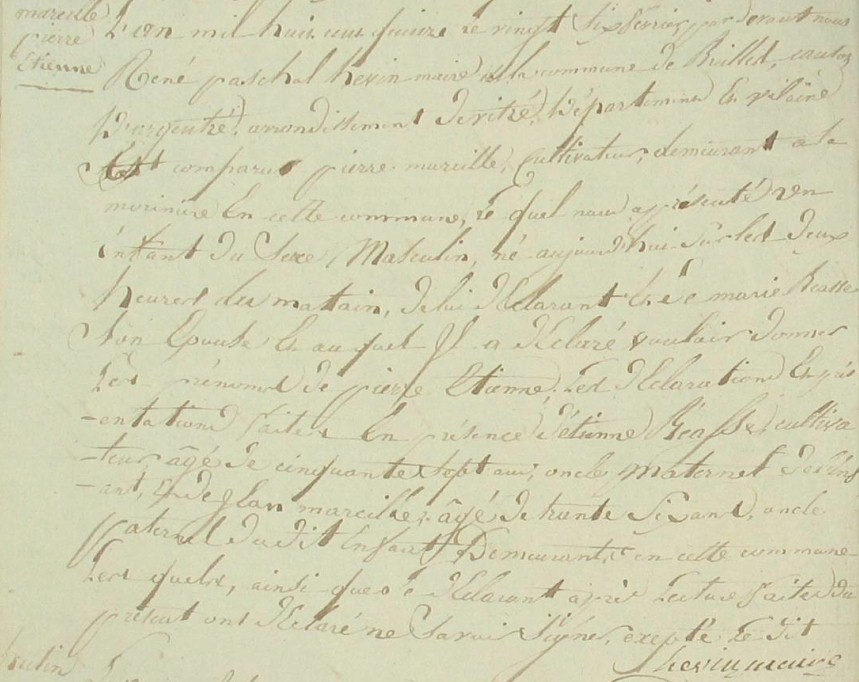 mareille
pierre
Etienne
L'an mil huit cent quinze le vingt six février, par devant nous
René paschal hevin maire de la commune de Brillet, canton
D'argentré, arrondissement De vitré, Département En vilaine
Est comparu pierre mareille, Cultivateur, demeurant a la
morinière En cette commune, le quel nous a présenté un
énfant du Sexe Masculin, né aujourd'hui Sur les Deux
heures du mattain, De lui Déclarant & de marie Réasse
Son Epouse & au quel Il a Déclaré vouloir Donner
Les prénoms de pierre Etienne; Les Déclarations & prés
-entations faites En présence d'étienne Réasse, cultiva
-teur âgé de cinquante Sept ans, oncle Maternel de l'énf
-ant, & de Jean mareille, âgé de trente Six ans, oncle
paternel du dit Enfant, Demeurants en cette commune
Les quels, ainsi que le Déclarant après Lecture faites du
présent ont Déclaré ne Savoir Signé, excepté Le Dit
hevin maire